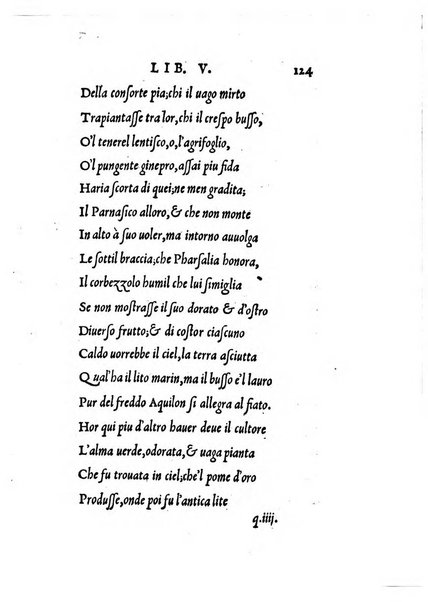 LIB. V. 124
Della conſorte pia;chi il uago mirto
Trapiantaſſe tra lor, chi il creſpo buſſo,
O'l tenerel lentiſco,o,l'agrifoglio,
O'l pungente ginepro,aſſai piu fida
Haria ſcorta di quei;ne men gradita;
Il Parnaſico alloro,& che non monte
In alto à ſuo uoler,ma intorno auuolga
Le ſottil braccia;che Pharſalia honora,
Il corbezzolo humil che lui ſimiglia
Se non moſtraſſe il ſuo dorato & d'oſtro
Diuerſo frutto;& di coſtor ciaſcuno
Caldo uorrebbe il ciel,la terra aſciutta
Qual'ha il lito marin,ma il buſſo e'l lauro
Pur del freddo Aquilon ſi allegra al fiato.
Hor qui piu d'altro hauer deue il cultore
L'alma uerde,odorata,& uaga pianta
Che fu trouata in ciel;che'l pome d'oro
Produſſe,onde poi fu l'antica lite
q.iiij.